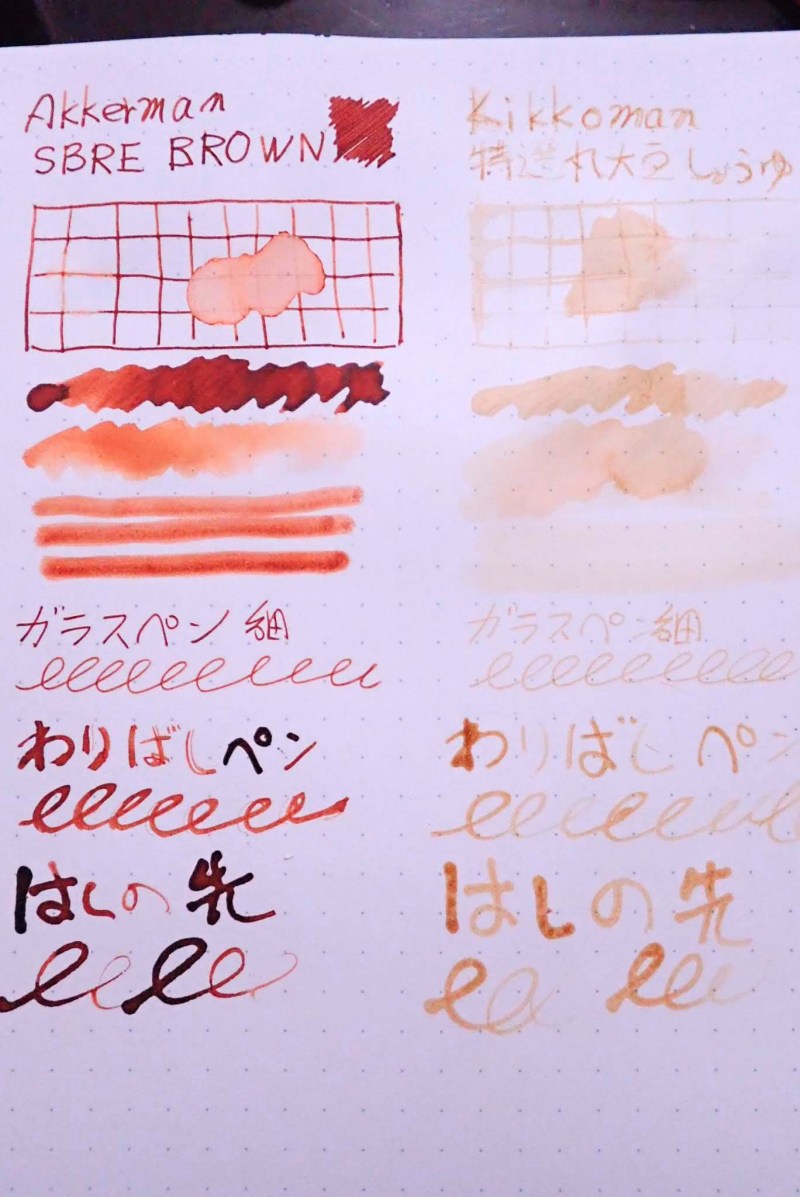 Akkerman
SBRE BROWN
ガラスペン 細
わりばしペン
はしの先
Kikkoman
特選丸大豆しょうゆ
ガラスペン細
わりばしペン
はしの先